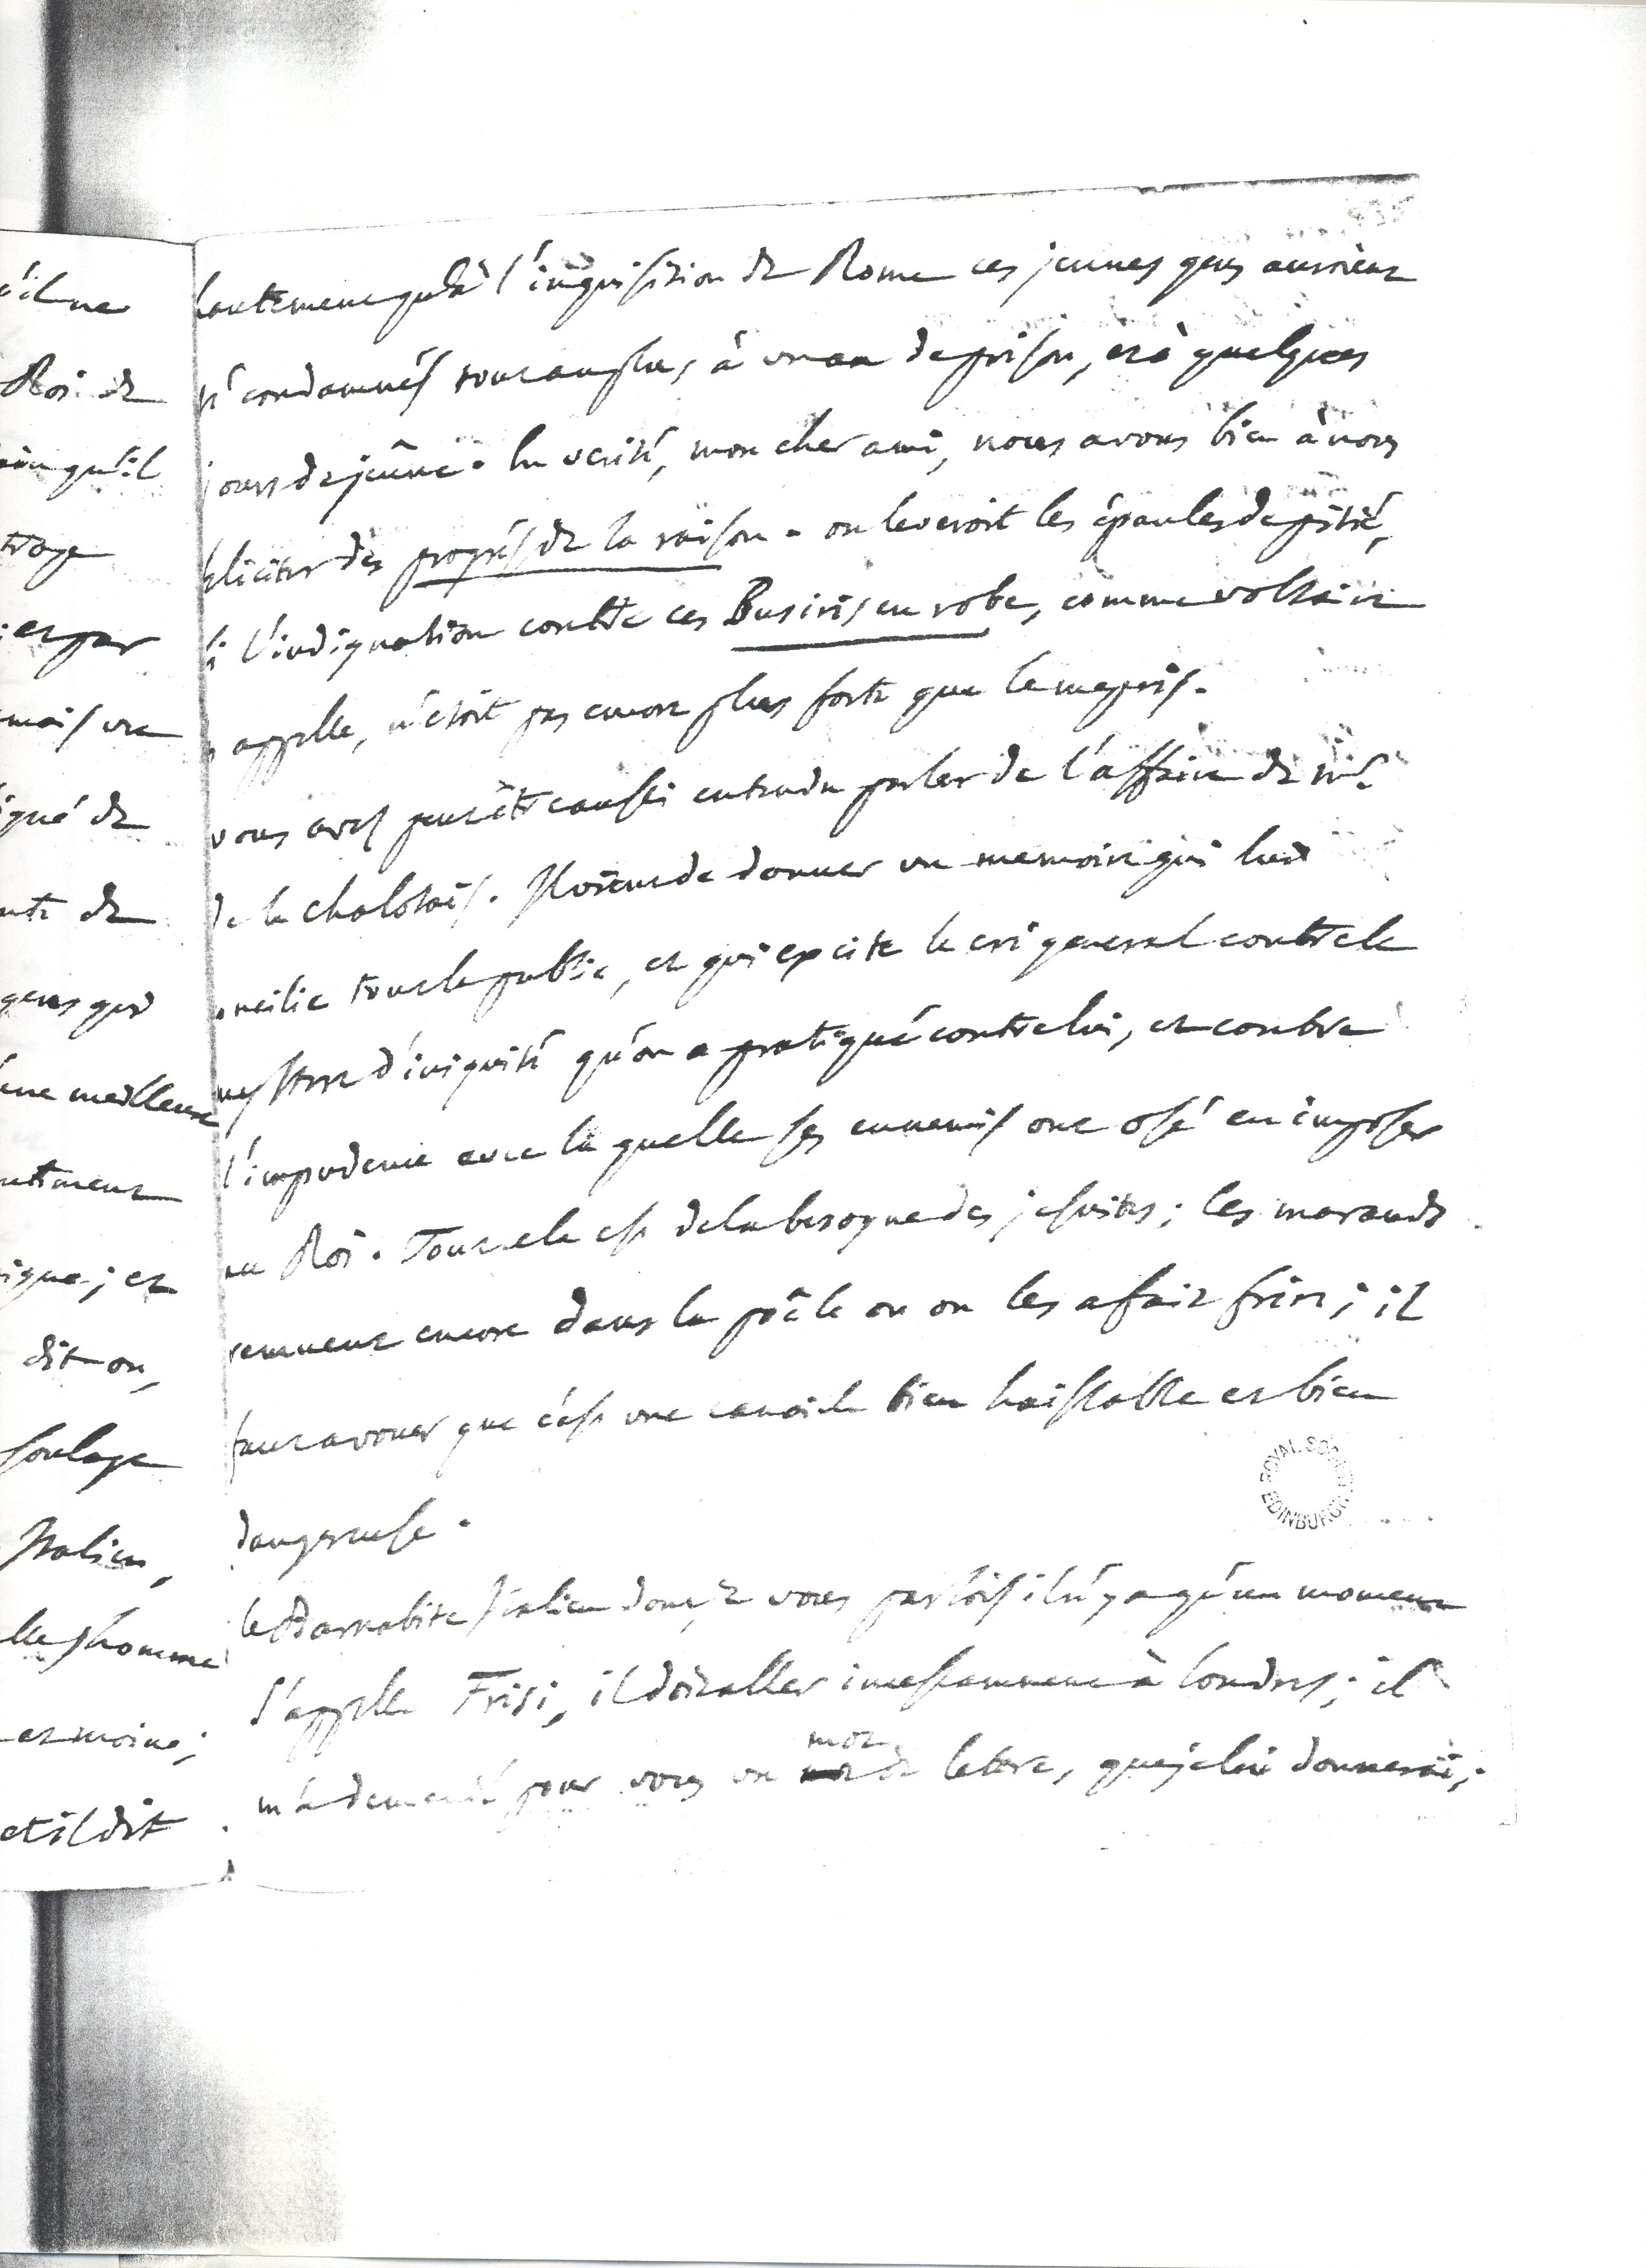 u'il ne
Roi de
qu'il
et par
mais une
igné de
nte de
gens qui
une meilleure
ntiment
ique; et
dit-on,
soulage
Italien,
lle, homme
et moine;
et il dit
hautement qu'à l'inquisition de Rome ces jeunes gens auroient
été condamnés tout au plus, à un an de prison, et à quelques
jours de jeûne. En verité, mon cher ami, nous avons bien à nous
feliciter des progrès de la raison. on leveroit les épaules de pitié,
si l'indignation contre ces Busiris en robe, comme voltaire
les appelle, n'étoit pas encore plus forte que le mepris.
vous avez peut être aussi entendu parler de l'affaire de Mr.
de la chalotais. Il vient de donner un memoire qui lui
concilie tout le public, et qui excite le cri general contre le
mystere d'iniquité qu'on a pratiqué contre lui, et contre
l'impudence avec la quelle ses ennemis ont osé en imposer
au Roi. Tout cela est de la besogne des jesuites; les marauds
remuent encore dans la poële ou on les a fait frire; il
faut avouer que c'est une canaille bien haissable et bien
dangereuse.
le Barnabite Italien dont je vous parlois il n'y a qu'un moment
s'appelle Frisi, il doit aller incessamment à Londres; il
mot
m'a demandé pour vous un de lettre, que je lui donnerai;
ROYAL SOCIETY EDINBURGH